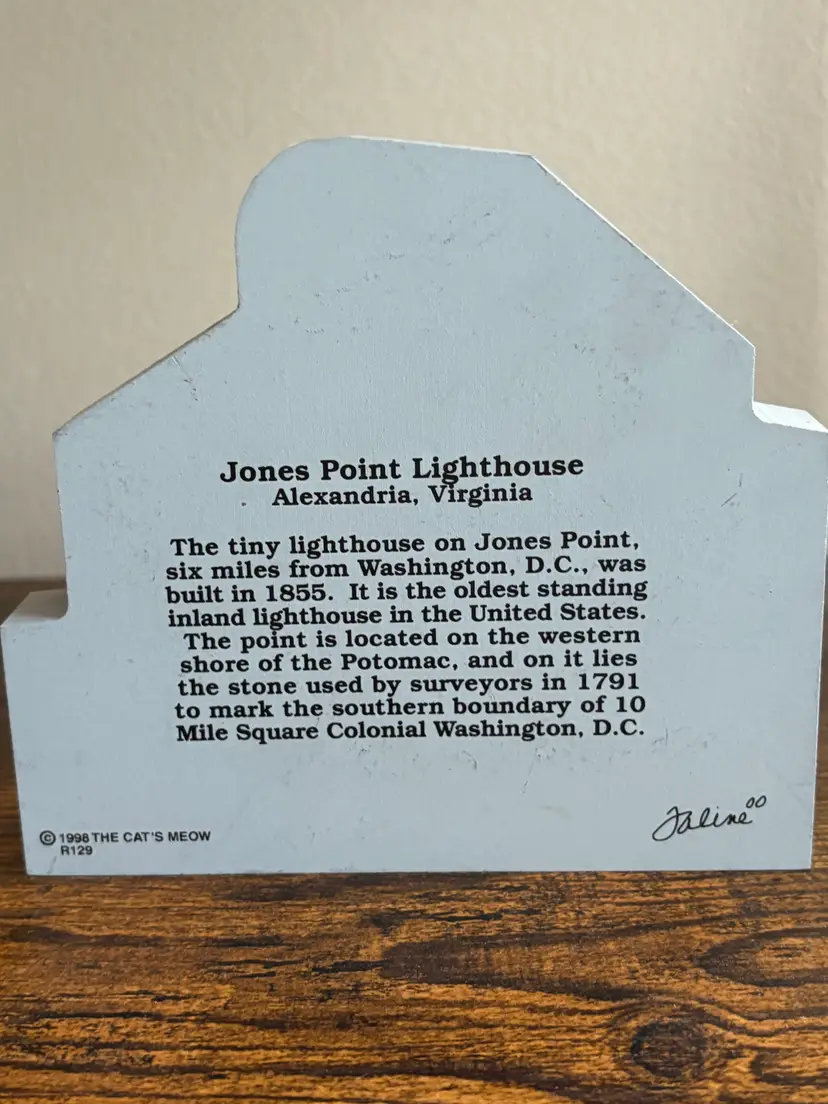 Jones Point Lighthouse
Alexandria, Virginia
The tiny lighthouse on Jones Point,
six miles from Washington, D.C., was
built in 1855. It is the oldest standing
inland lighthouse in the United States.
The point is located on the western
shore of the Potomac, and on it lies
the stone used by surveyors in 1791
to mark the southern boundary of 10
Mile Square Colonial Washington, D.C.
© 1998 THE CAT'S MEOW
R129
Faline 00